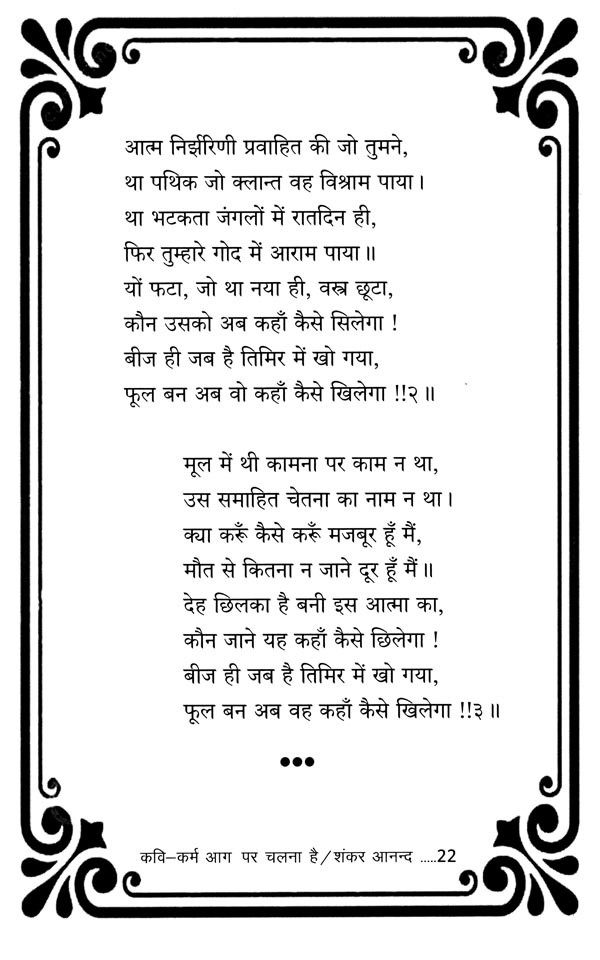 आत्म निर्झरिणी प्रवाहित की जो तुमने,
था पथिक जो क्लान्त वह विश्राम पाया।
था भटकता जंगलों में रातदिन ही,
फिर तुम्हारे गोद में आराम पाया॥
यों फटा, जो था नया ही, वस्त्र छूटा,
कौन उसको अब कहाँ कैसे सिलेगा !
बीज ही जब है तिमिर में खो गया,
फूल बन अब वो कहाँ कैसे खिलेगा !!२॥
मूल में थी कामना पर काम न था,
उस समाहित चेतना का नाम न था।
क्या करूँ कैसे करूँ मजबूर हूँ मैं,
मौत से कितना न जाने दूर हूँ मैं॥
देह छिलका है बनी इस आत्मा का,
कौन जाने यह कहाँ कैसे छिलेगा !
बीज ही जब है तिमिर में खो गया,
फूल बन अब वह कहाँ कैसे खिलेगा !!३॥
•••
कवि–कर्म आग पर चलना है/शंकर आनन्द .....22